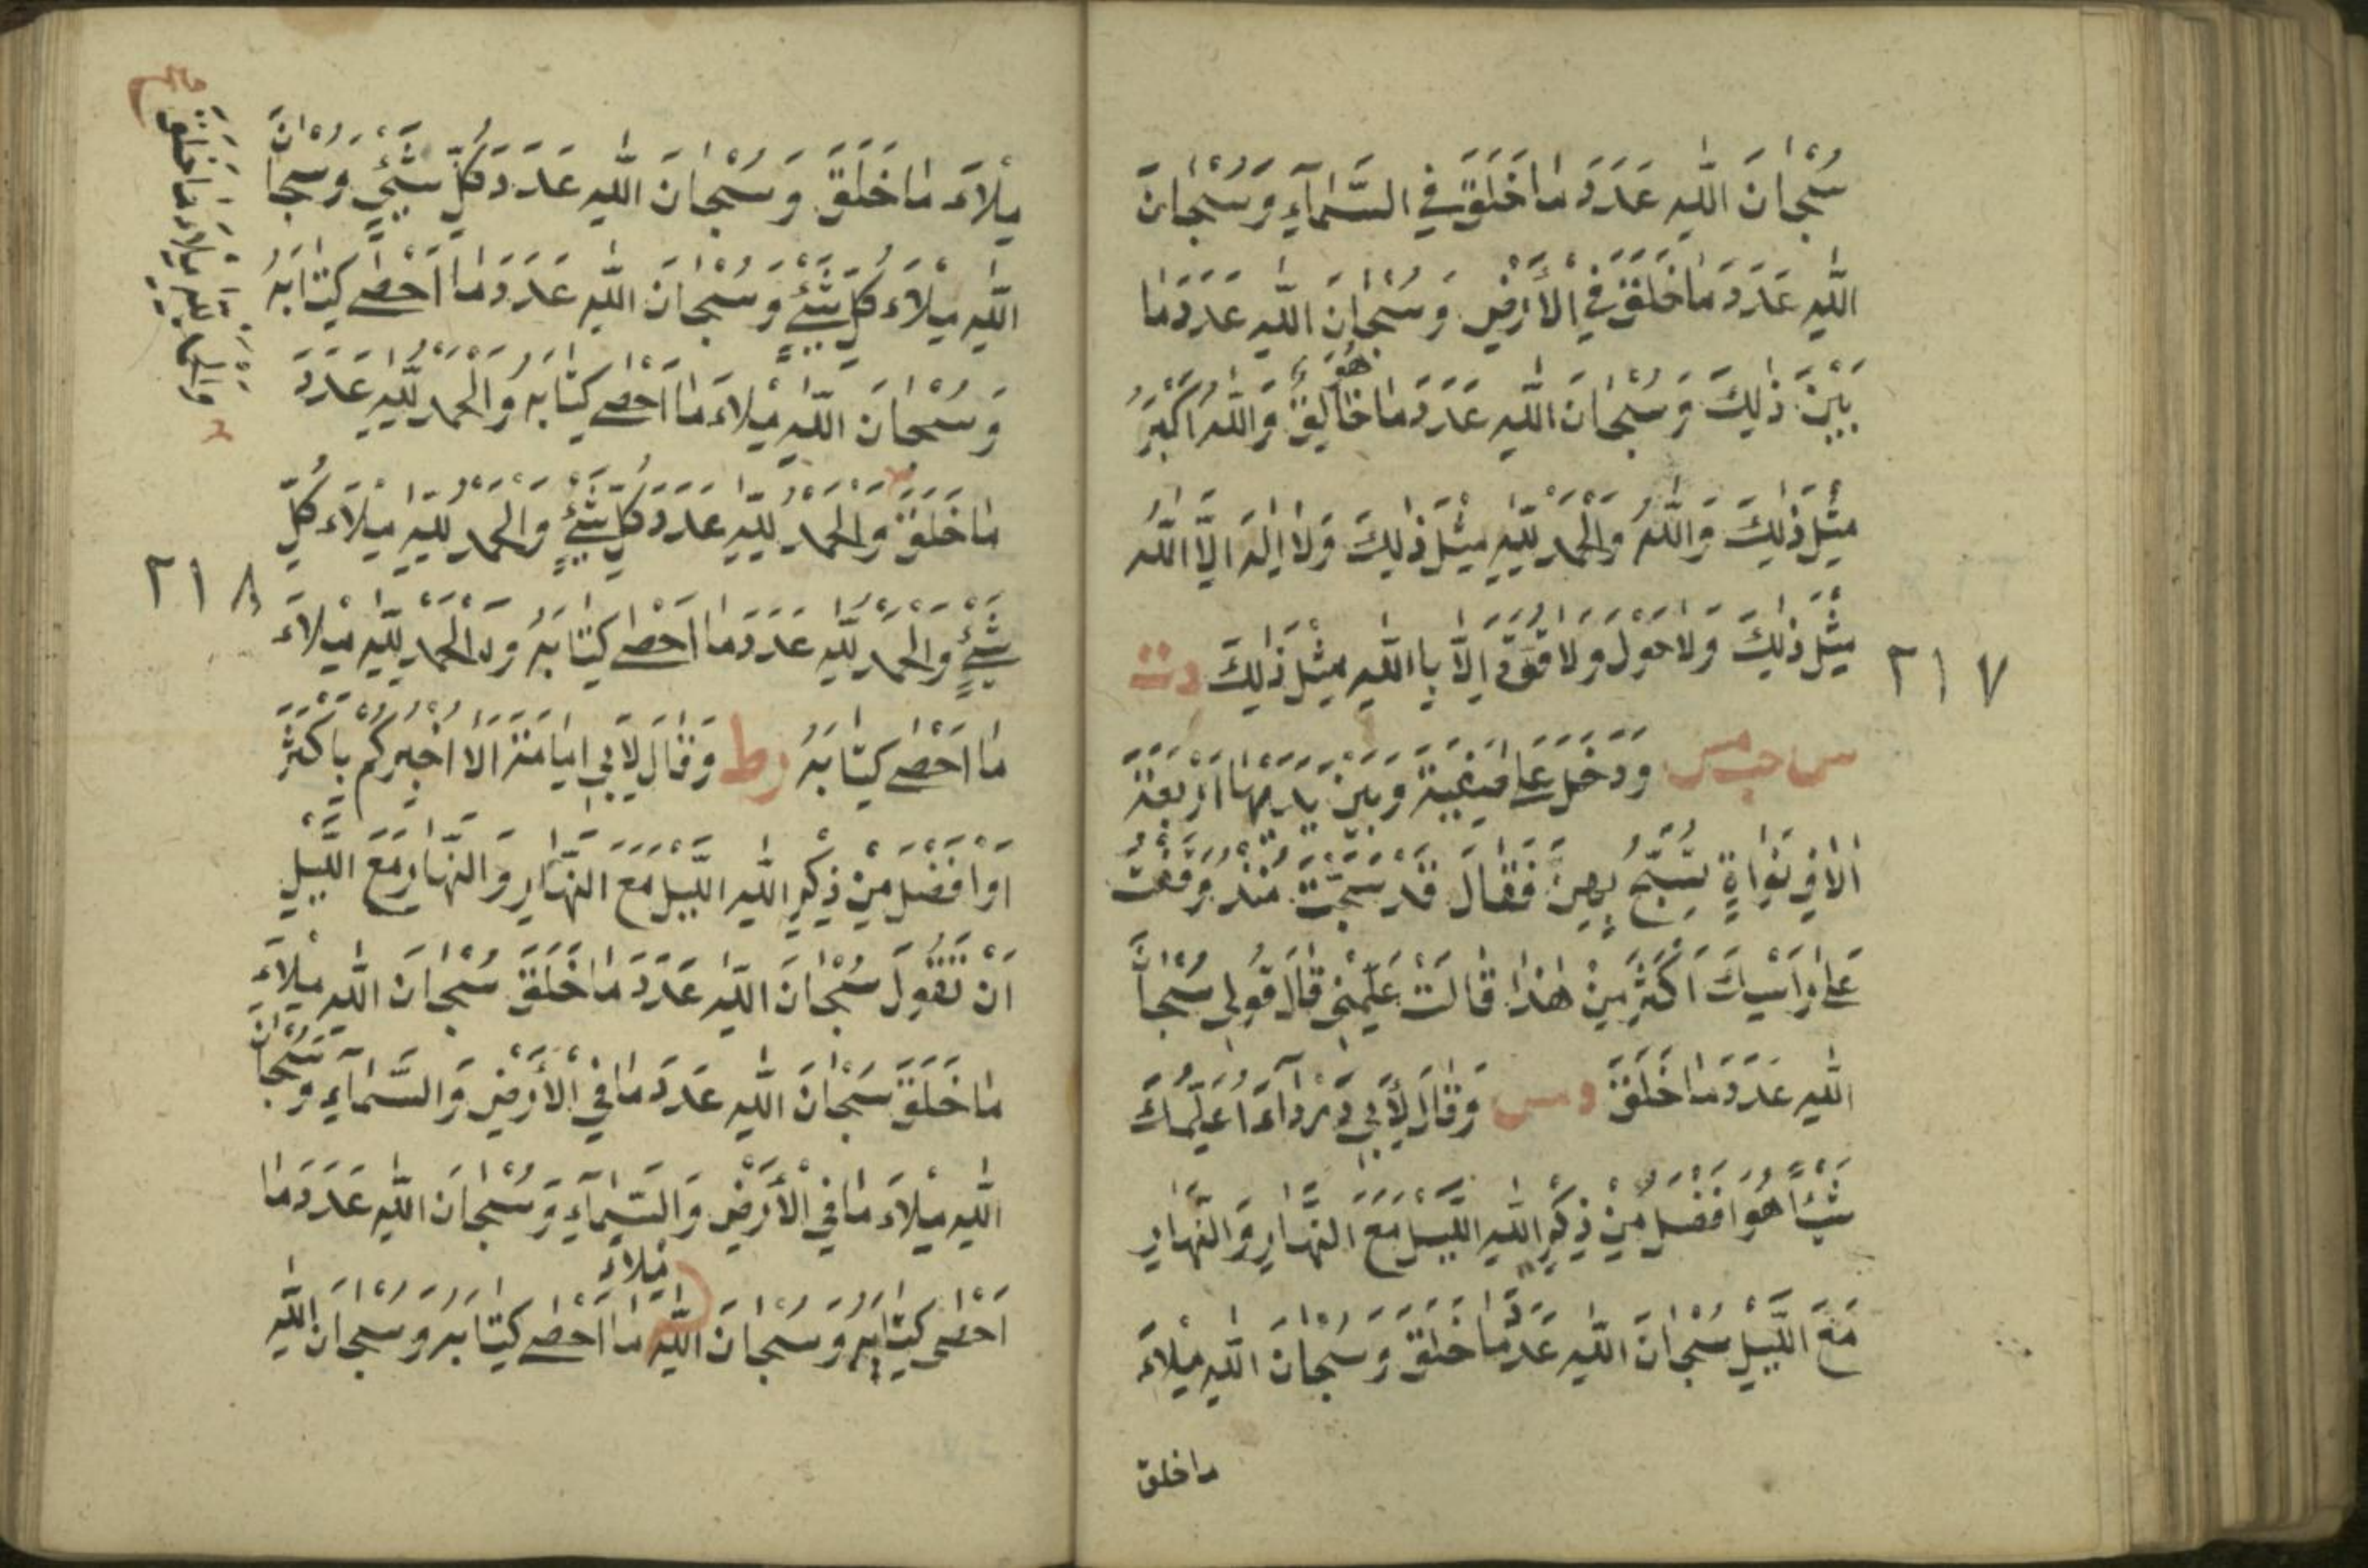 سُبْحَانَ اللّٰهِ عَدَدَ مَا خَلَقَ فِي السَّمَآءِ وَسُبْحَانَ
اللّٰهِ عَدَدَ مَا خَلَقَ فِي الْأَرْضِ وَسُبْحَانَ اللّٰهِ عَدَدَ مَا
بَيْنَ ذٰلِكَ وَسُبْحَانَ اللّٰهِ عَدَدَ مَا هُوَ خَالِقٌ وَاللّٰهُ اَكْبَرُ
مِثْلَ ذٰلِكَ وَاللّٰهُ وَالْحَمْدُ لِلّٰهِ مِثْلَ ذٰلِكَ وَلَا اِلٰهَ اِلَّا اللّٰهُ
مِثْلَ ذٰلِكَ وَلَا حَوْلَ وَلَا قُوَّةَ اِلَّا بِااللّٰهِ مِثْلَ ذٰلِكَ دت
س حب مس وَدَخَلَ عَلٰى صَفِيَّةَ وَبَيْنَ يَدَيْهَا اَرْبَعَةُ
اٰلَافِ نَوَاةٍ تُسَبِّحُ بِهِنَّ فَقَالَ قَدْ سَبَّحْتُ مُنْذُ وَقَفْتُ
عَلٰى رَاْسِكَ اَكْثَرَ مِنْ هٰذَا قَالَتْ عَلِّمْنِي قَالَ قُولِي سُبْحَانَ
اللّٰهِ عَدَدَ مَا خَلَقَ د مس وَقَالَ لِأَبِي دَرْدَآءَ اُعَلِّمُكَ
شَيْئًا هُوَ اَفْضَلُ مِنْ ذِكْرِ اللّٰهِ اللَّيْلَ مَعَ النَّهَارِ وَالنَّهَارِ
مَعَ اللَّيْلِ سُبْحَانَ اللّٰهِ عَدَدَ مَا خَلَقَ وَسُبْحَانَ اللّٰهِ مِلْاَءَ
ماخلق
٢١٧
مِلْاَءَ مَا خَلَقَ وَسُبْحَانَ اللّٰهِ عَدَدَ كُلِّ شَيْئٍ وَسُبْحَانَ
اللّٰهِ مِلْاَءَ كُلِّ شَيْئٍ وَسُبْحَانَ اللّٰهِ عَدَدَ مَا اَحْصٰى كِتَابَهُ
وَسُبْحَانَ اللّٰهِ مِلْاَءَ مَا اَحْصٰى كِتَابَهُ وَالْحَمْدُ لِلّٰهِ عَدَدَ
مَا خَلَقَ وَالْحَمْدُ لِلّٰهِ عَدَدَ كُلِّ شَيْئٍ وَالْحَمْدُ لِلّٰهِ مِلْاَءَ كُلِّ
شَيْئٍ وَالْحَمْدُ لِلّٰهِ عَدَدَ مَا اَحْصٰى كِتَابَهُ وَالْحَمْدُ لِلّٰهِ مِلْاَءَ
مَا اَحْصٰى كِتَابَهُ رط وَقَالَ لِاَبِي اُمَامَةَ اَلَا اُخْبِرُكُمْ بِاَكْثَرَ
اَوْ اَفْضَلَ مِنْ ذِكْرِ اللّٰهِ اللَّيْلَ مَعَ النَّهَارِ وَالنَّهَارِ مَعَ اللَّيْلِ
اَنْ تَقُولَ سُبْحَانَ اللّٰهِ عَدَدَ مَا خَلَقَ سُبْحَانَ اللّٰهِ مِلْاَءَ
مَا خَلَقَ سُبْحَانَ اللّٰهِ عَدَدَ مَا فِي الْأَرْضِ وَالسَّمَآءِ وَسُبْحَانَ
اللّٰهِ مِلْاَءَ مَا فِي الْأَرْضِ وَالسَّمَآءِ وَسُبْحَانَ اللّٰهِ عَدَدَ مَا
اَحْصٰى كِتَابَهُ وَسُبْحَانَ اللّٰهِ مِلْاَءَ مَا اَحْصٰى كِتَابَهُ وَسُبْحَانَ اللّٰهِ
والحمد لله ملاء ما خلق
٢١٨